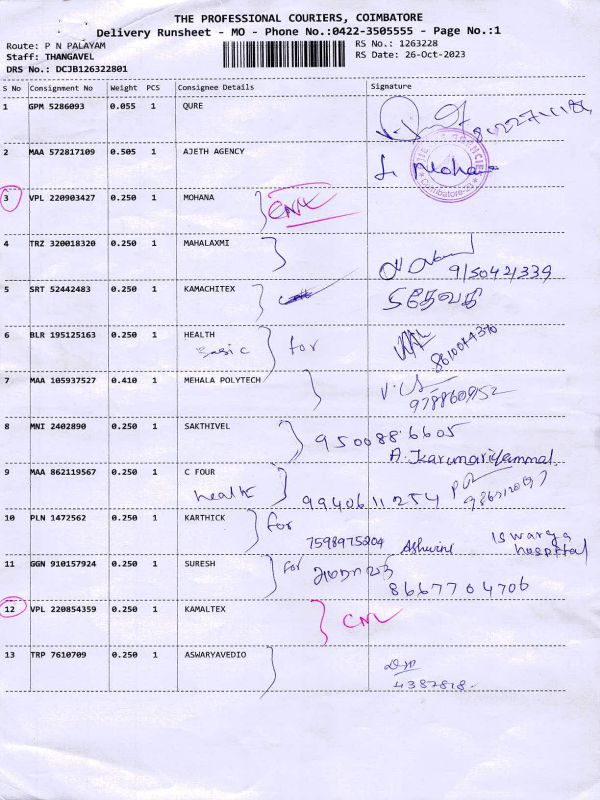 THE PROFESSIONAL COURIERS, COIMBATORE
Delivery Runsheet - MO - Phone No.:0422-3505555 - Page No.:1
Route: P N PALAYAM
Staff: THANGAVEL
DRS No.: DCJB126322801
RS No.: 1263228
RS Date: 26-Oct-2023
S No Consignment No Weight PCS Consignee Details Signature
1 GPM 5286093 0.055 1 QURE
2 MAA 572817109 0.505 1 AJETH AGENCY
Coimbatore
3 VPL 220903427 0.250 1 MOHANA
4 TRZ 320018320 0.250 1 MAHALAXMI
5 SRT 52442483 0.250 1 KAMACHITEX
6 BLR 195125163 0.250 1 HEALTH
Basic for
7 MAA 105937527 0.410 1 MEHALA POLYTECH
8 MNI 2402890 0.250 1 SAKTHIVEL
9500886605
A. Karumariyammal
9 MAA 862119567 0.250 1 C FOUR
health 9940611254
10 PLN 1472562 0.250 1 KARTHICK for
7598975204 Ashwini Iswarya hospital
11 GGN 910157924 0.250 1 SURESH for
8667704706
12 VPL 220854359 0.250 1 KAMALTEX
13 TRP 7610709 0.250 1 ASWARYAVEDIO
4387818